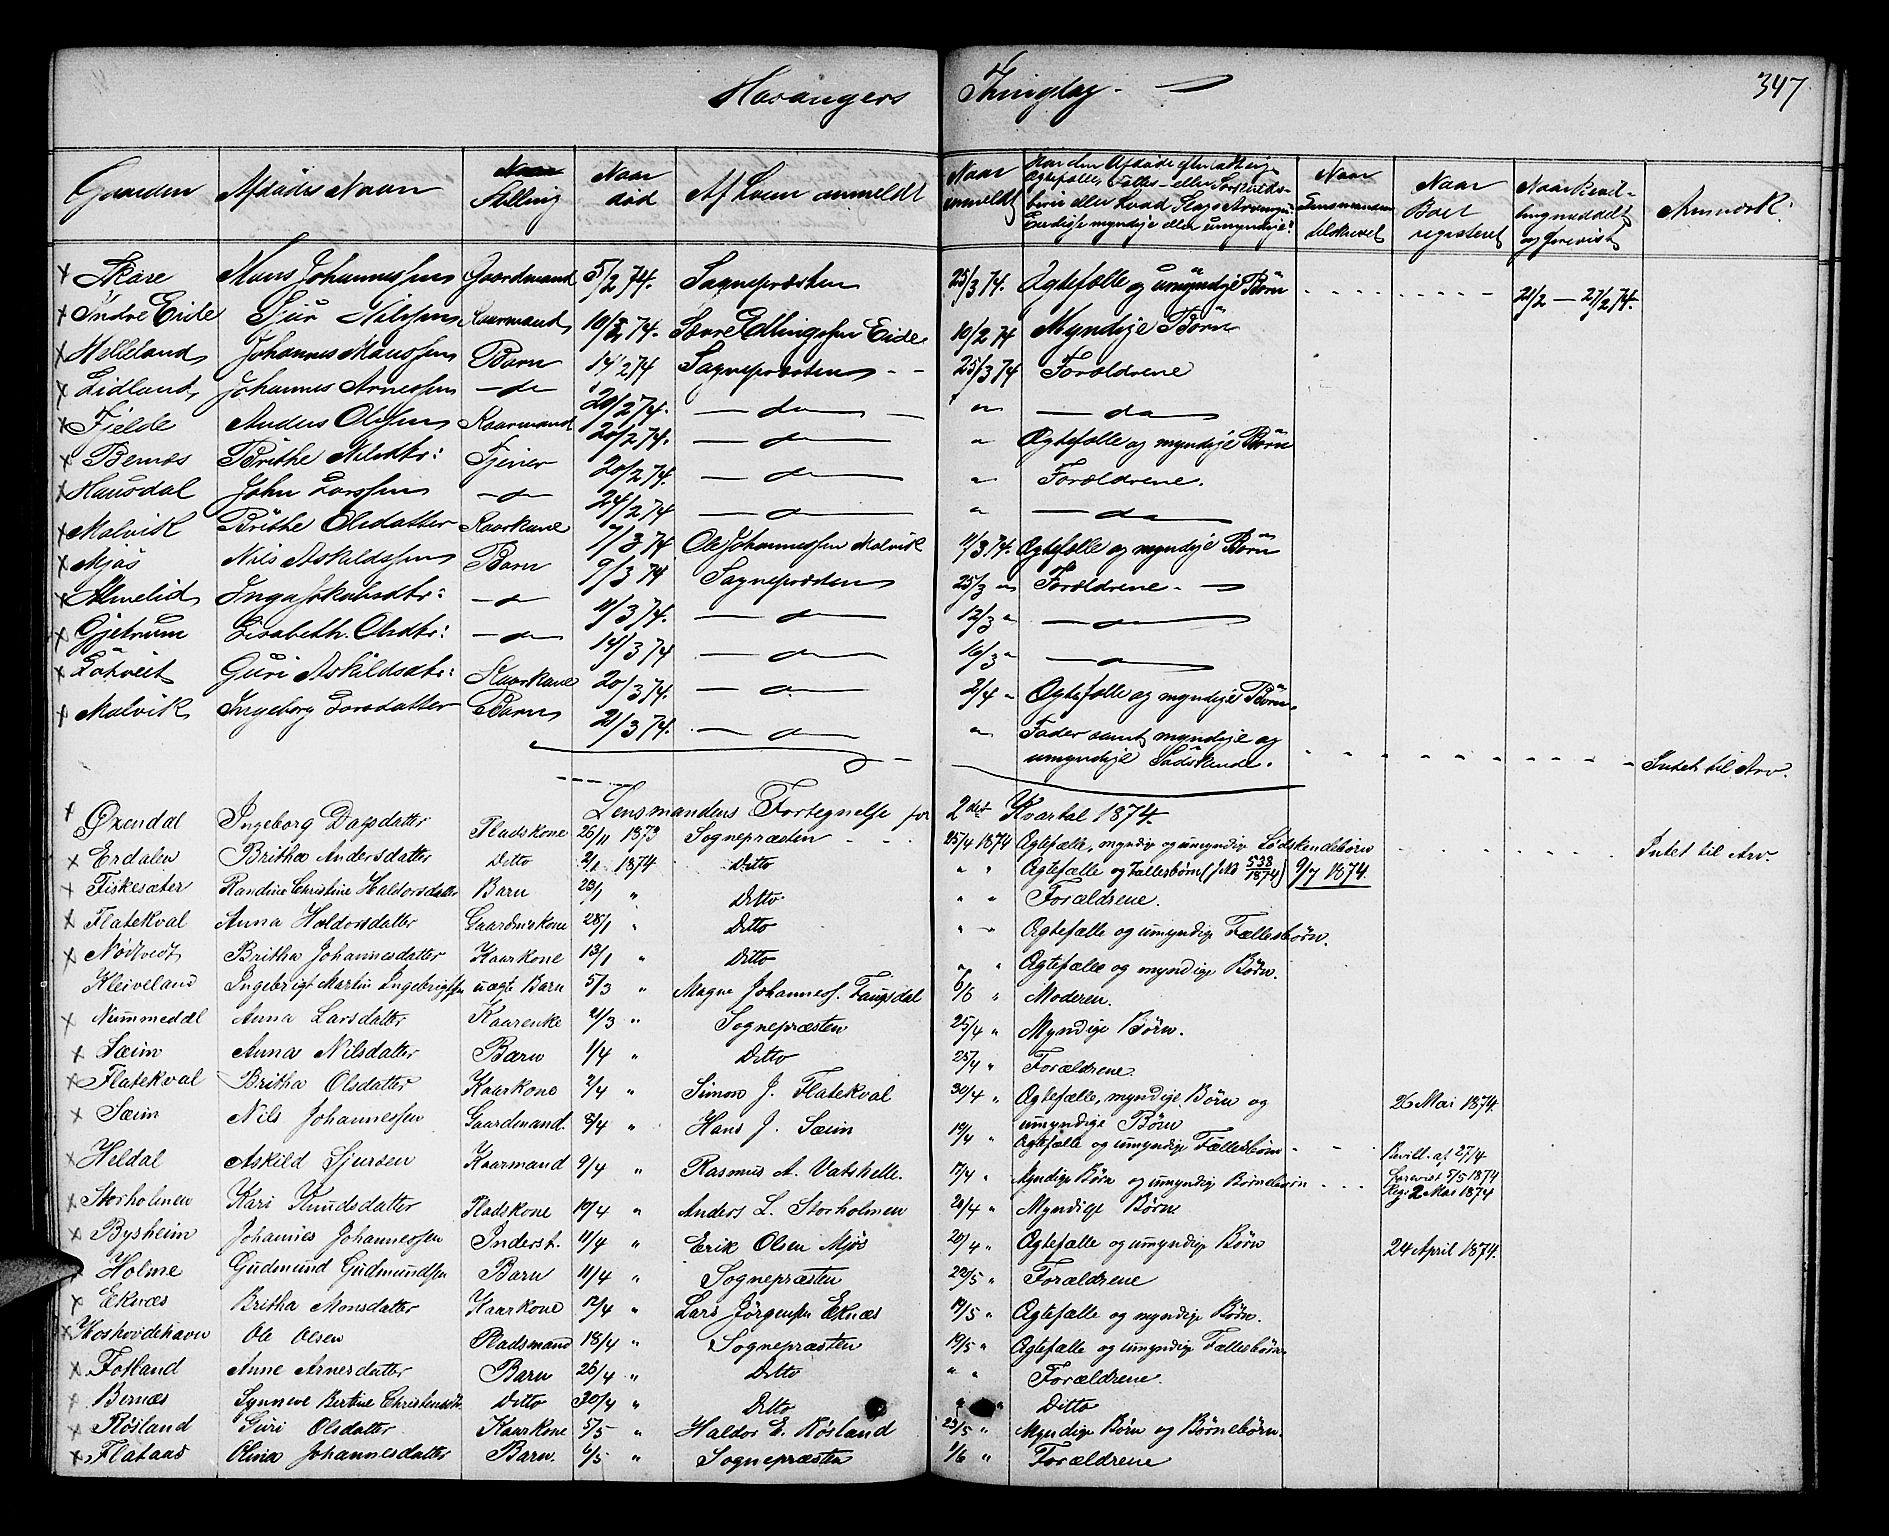 Hosangers Thinglag. 347
Gaarden | Afdødes Navn | Stilling | Naar død | Af hvem anmeldt | Naar anmeldt | Har den Afdøde efterladt sig Ægtefælle, Fælles- eller Særkulds- børn eller hvad Slags Arvinger. Endvidere myndige eller umyndige? | Naar Lensmanden tilskrevet | Naar Boet registeret | Naar Bevil- ling meddelt og forevist | Anmærk:
x Skare | Mons Johannessen | Gaardmand | 5/2 74. | Sognepræsten | 25/3 74. | Ægtefælle og umyndige Børn | 21/2 — 27/2 74.
x Indre Eide | Sjur Nilssen | Kaarmand | 10/2 74. | Sævre Edlingsen Eide | 19/2 74 | Myndige Børn
x Helleland | Johannes Monssen | Barn | 14/2 74 | Sognepræsten - - | 25/3 74 | Forældrene
x Lidland | Johannes Arnessen | — do | 20/2 74. | — do — | " | — do —
x Fjelde | Anders Olssen | Kaarmand | 20/2 74. | — do — | " | Ægtefælle og myndige Børn
x Bernæs | Brithe Nilsdtr: | Tjener | 20/2 74. | — do — | " | Forældrene.
x Hausdal | John Larssen | — do | 24/2 74 | — do — | " | — do —
x Malvik | Brithe Olsdatter | Kaarkone | 1/3 74 | Ole Johannessen Malvik | 11/3 74. | Ægtefælle og myndige Børn
x Mjøs | Nils Askildssen | Barn | 9/3 74 | Sognepræsten | 25/3 " | Forældrene. —
x Almelid | Inga Jakobsdtr: | — do | 11/3 74. | — do — | 12/3 " | — do —
x Gjetrum | Lisabeth. Olsdtr: | — do | 14/3 74 | — do — | 16/3 " | — do —
x Løtveit | Guri Askildsdtr: | Kaarkone | 20/3 74. | — do — | 2/4 " | Ægtefælle og myndige Børn.
x Malvik | Ingeborg Larsdatter | Barn | 21/3 74. | — do — | " | Fader samt myndige og
umyndige Sødskende. | Intet til Arv.
Lensmandens Fortegnelse for 2det Kvartal 1874.
x Øxendal | Ingeborg Dagsdatter | Pladskone | 26/11 1873 | Sognepræsten - - - | 25/4 1874 | Ægtefælle, myndig og umyndig Sødskendebørn | Intet til Arv.
x Erdalen | Britha Andersdatter | Ditto | 2/1 1874 | Ditto | " " | Ægtefælle og Fællesbørn (J.No 538/1874) | 9/7 1874.
x Fiskesæter | Randine Christine Haldorsdatter | Barn | 23/1 " | Ditto | " " | Forældrene.
x Flatekval | Anna Haldorsdatter | Gaardmskone | 28/1 " | Ditto | " " | Ægtefælle og umyndig Fællesbørn.
x Nøttvedt | Britha Johannesdatter | Kaarkone | 13/1 " | Ditto | " " | Ægtefælle og myndige Børn.
Kleiveland | Ingebrigt Martin Ingebrigtsen | uægte Barn | 5/3 " | Magne Johanness. Faugsdal | 6/6 " | Moderen.
x Nummedal | Anna Larsdatter | Kaarenke | 21/3 " | Sognepræsten | 25/4 " | Myndige Børn.
x Sæim | Anna Nilsdatter | Barn | 1/4 " | Ditto | 25/4 " | Forældrene.
x Flatekval | Britha Olsdatter | Kaarkone | 2/4 " | Simon J. Flatekval | 30/4 " | Ægtefælle, myndige Børn og umyndige Børn | 26 Mai 1874.
x Sæim | Nils Johannessen | Gaardmand. | 8/4 " | Hans J. Sæim | 19/4 " | Ægtefælle og umyndig Fællesbørn - - - | Bevill. af 27/4 Forevist 5/5 1874
x Heldal | Askild Sjursen | Kaarmand | 9/4 " | Rasmus A. Vatshelle. | 17/4 " | Myndige Børn og umyndig Børnebørn - - - | Reg: 2 Mai 1874
x Storholmen | Kari Knudsdatter | Pladskone | 10/4 " | Anders L. Storholmen | 21/4 " | Myndige Børn
x Bysheim | Johannes Johannessen | Inderst. | 11/4 " | Erik Olsen Mjøs | 20/4 " | Ægtefælle og umyndig Børn | 24 April 1874.
x Holme | Gudmund Gudmundsen | Barn | 11/4 " | Sognepræsten | 22/5 " | Forældrene
x Eknæs | Britha Monsdatter | Kaarkone | 12/4 " | Lars Jørgensen Eknæs | 19/5 " | Ægtefælle og myndig Børn.
x Hoshovdehavn | Ole Olsen | Pladsmand | 18/4 " | Sognepræsten | 19/5 " | Ægtefælle og umyndig Fællesbørn
x Fotland | Anne Arnesdatter | Barn | 26/4 " | Ditto | " " | Forældrene.
x Bernæs | Synneve Bertine Christensdtr | Ditto | 30/4 " | Ditto | " " | Ditto
x Røsland | Guri Olsdatter | Kaarkone | 5/5 " | Haldor E. Røsland | 23/5 " | Myndige Børn og Børnebørn.
x Flataas | Olina Johannesdatter | Barn. | 6/5 " | Sognepræsten | 1/6 " | Forældrene